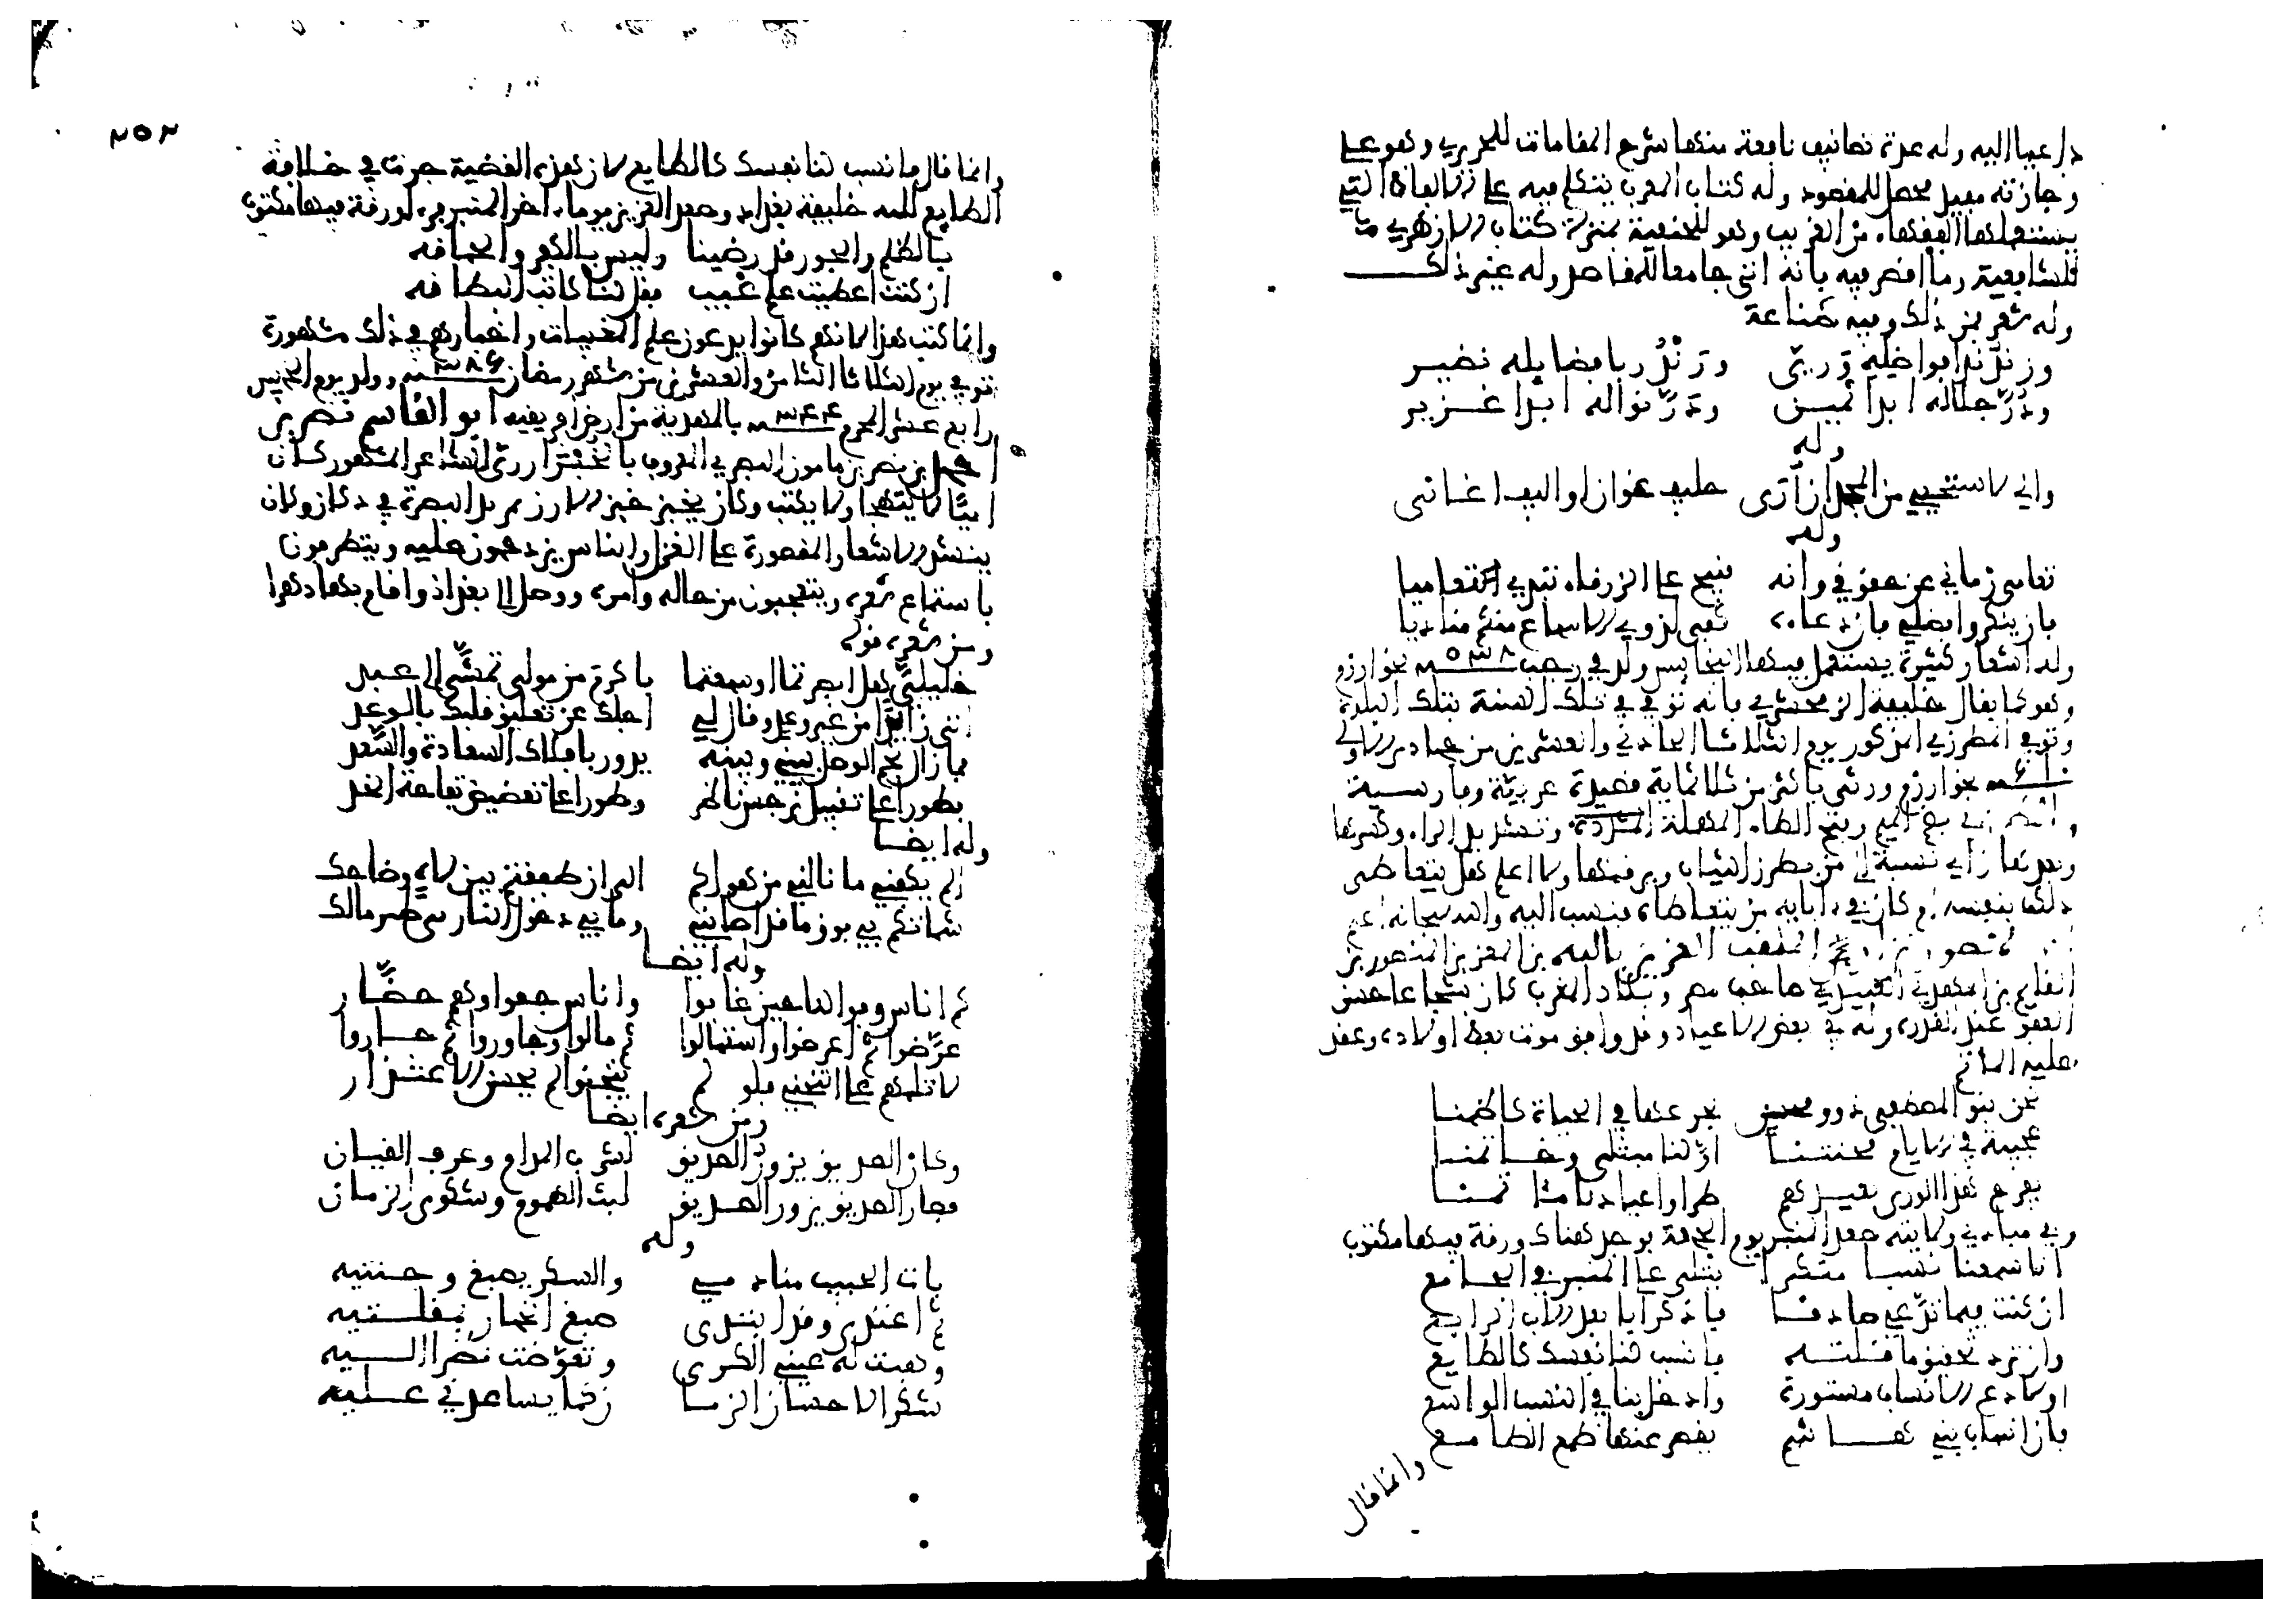 داعيا اليه وله عدة تصانيف نافعة منها شرح المقامات للحريري وهو على
وجازته مفيد محصل للمقصود وله كتاب المغرب يتكلم فيه على الالفاظ التي
يستعملها الفقهاء من الغريب وهو للحنفية بمنزلة كتاب الازهري
للشافعية وما اقصر فيه فانه اتى جامعا للمقاصد وله غير ذلك
وله شعر فمن ذلك وفيه صناعة
وزند ندا فواضله وري ورند ربا فضايله نضير
ودر جلاله ابدا ثمين ودر نواله ابدا غزير
وله
واني لاستحيي من المجد ان ارى حليف غوان او اليف اغاني
وله
تعامى زماني عن حقوقي وانه قبيح على الزرقاء تبدي التعاميا
فان ينكروا فضلي فان دعاءه كفى لذوي الاسماع منكم مناديا
وله اشعار كثيرة يستعمل فيها التجانيس ولد في رجب ٥٣٨ بخوارزم
وهو كما يقال خليفة الزمخشري فانه توفي في تلك السنة بتلك البلدة
وتوفي المطرزي المذكور يوم الثلاثا الحادي والعشرين من جمادى الاولى
بخوارزم ورثي باكثر من ثلاثماية قصيدة عربية وفارسية
بضم الميم وفتح الطاء المهملة وتشديد الراء وكسرها
وبعدها زاي نسبة الى من يطرز الثياب ويرقمها ولا اعلم هل يتعاطى
ذلك بنفسه ام كان في ابايه من يتعاطاه فنسب اليه والله سبحانه اعلم
الملقب العزيز بالله بن المعز بن المنصور بن
القايم بن المهدي العبيدي صاحب مصر وبلاد المغرب كان شجاعا حسن
العفو عند القدرة وله في بعض الاعياد وقد وافق موت بعض اولاده وعقد
عليه الماتم
نحن بنو المصطفى ذوو محن نجرعها في الحياة كاظمنا
عجيبة في الايام محنتنا اولنا مبتلى وخاتمنا
يفرح هذا الورى بعيدهم طرا واعيادنا ماتمنا
وفي مبادي ولايته صعد المنبر يوم الجمعة فوجد هناك ورقة فيها مكتوب
انا سمعنا نسبا منكرا يتلى على المنبر في الجامع
ان كنت فيما تدعي صادقا فاذكر ابا بعد الاب الرابع
وان ترد تحقيق ما قلته فانسب لنا نفسك كالطايع
اولا دع الانساب مستورة وادخل بنا في النسب الواسع
فان انساب بني هاشم يقصر عنها طمع الطامع
وانما قال
٢٥٢
وانما قال فانسب لنا نفسك كالطايع لان هذه القضية جرت في خلافة
الطايع لله خليفة بغداد وصعد العزيز يوما اخر المنبر فراى ورقة فيها مكتوب
بالظلم والجور قد رضينا وليس بالكفر والحماقه
ان كنت اعطيت علم غيب فقل لنا كاتب البطاقه
وانما كتب هذا لانهم كانوا يدعون علم المغيبات واخبارهم في ذلك مشهورة
توفي يوم الثلاثا الثامن والعشرين من شهر رمضان ٣٨٦ وولد يوم الخميس
رابع عشر المحرم ٣٤٤ بالمهدية من ارض افريقيه ابو القاسم نصر بن
احمد بن نصر بن مامون البصري المعروف بالخبز ارزي الشاعر المشهور كان
اميا لا يتهجا ولا يكتب وكان يخبز خبز الارز بمربد البصرة في دكان وكان
ينشد الاشعار المقصورة على الغزل والناس يزدحمون عليه ويتطرفون
باستماع شعره ويتعجبون من حاله وامره ووصل الى بغداد واقام بها دهرا
ومن شعره قوله
خليلي هل ابصرتما او سمعتما باكرم من مولى تمشى الى عبد
اتى زايرا من غير وعد وقال لي اجلك عن تعليق قلبك بالوعد
فما زال نجم الوصل بيني وبينه يدور بافلاك السعادة والسعد
فطورا على تقبيل نرجس ناظر وطورا على تعضيض تفاحة الخد
وله ايضا
الم يكفني ما نالني من هواكم الى ان طفقتم بين لاه وضاحك
شماتكم بي فوق ما قد اصابني وما بي دخول النار بي طنز مالك
وله ايضا
كم اناس وفوا لنا حين غابوا واناس جفوا وهم حضار
عرضوا ثم اعرضوا واستمالوا ثم مالوا وجاوروا ثم جاروا
لا تلمهم على التجني فلو لم يتجنوا لم يحسن الاعتذار
ومن شعره ايضا
وكان الصديق يزور الصديق لشرب المدام وعزف القيان
فصار الصديق يزور الصديق لبث الهموم وشكوى الزمان
وله
بات الحبيب منادمي والسكر يصبغ وجنتيه
ثم اغتدى وقد ابتدى صبغ الخمار بمقلتيه
وهبت له عيني الكرى وتعوضت نظرا اليه
شكرا لاحسان الزمان كما يساعدني عليه